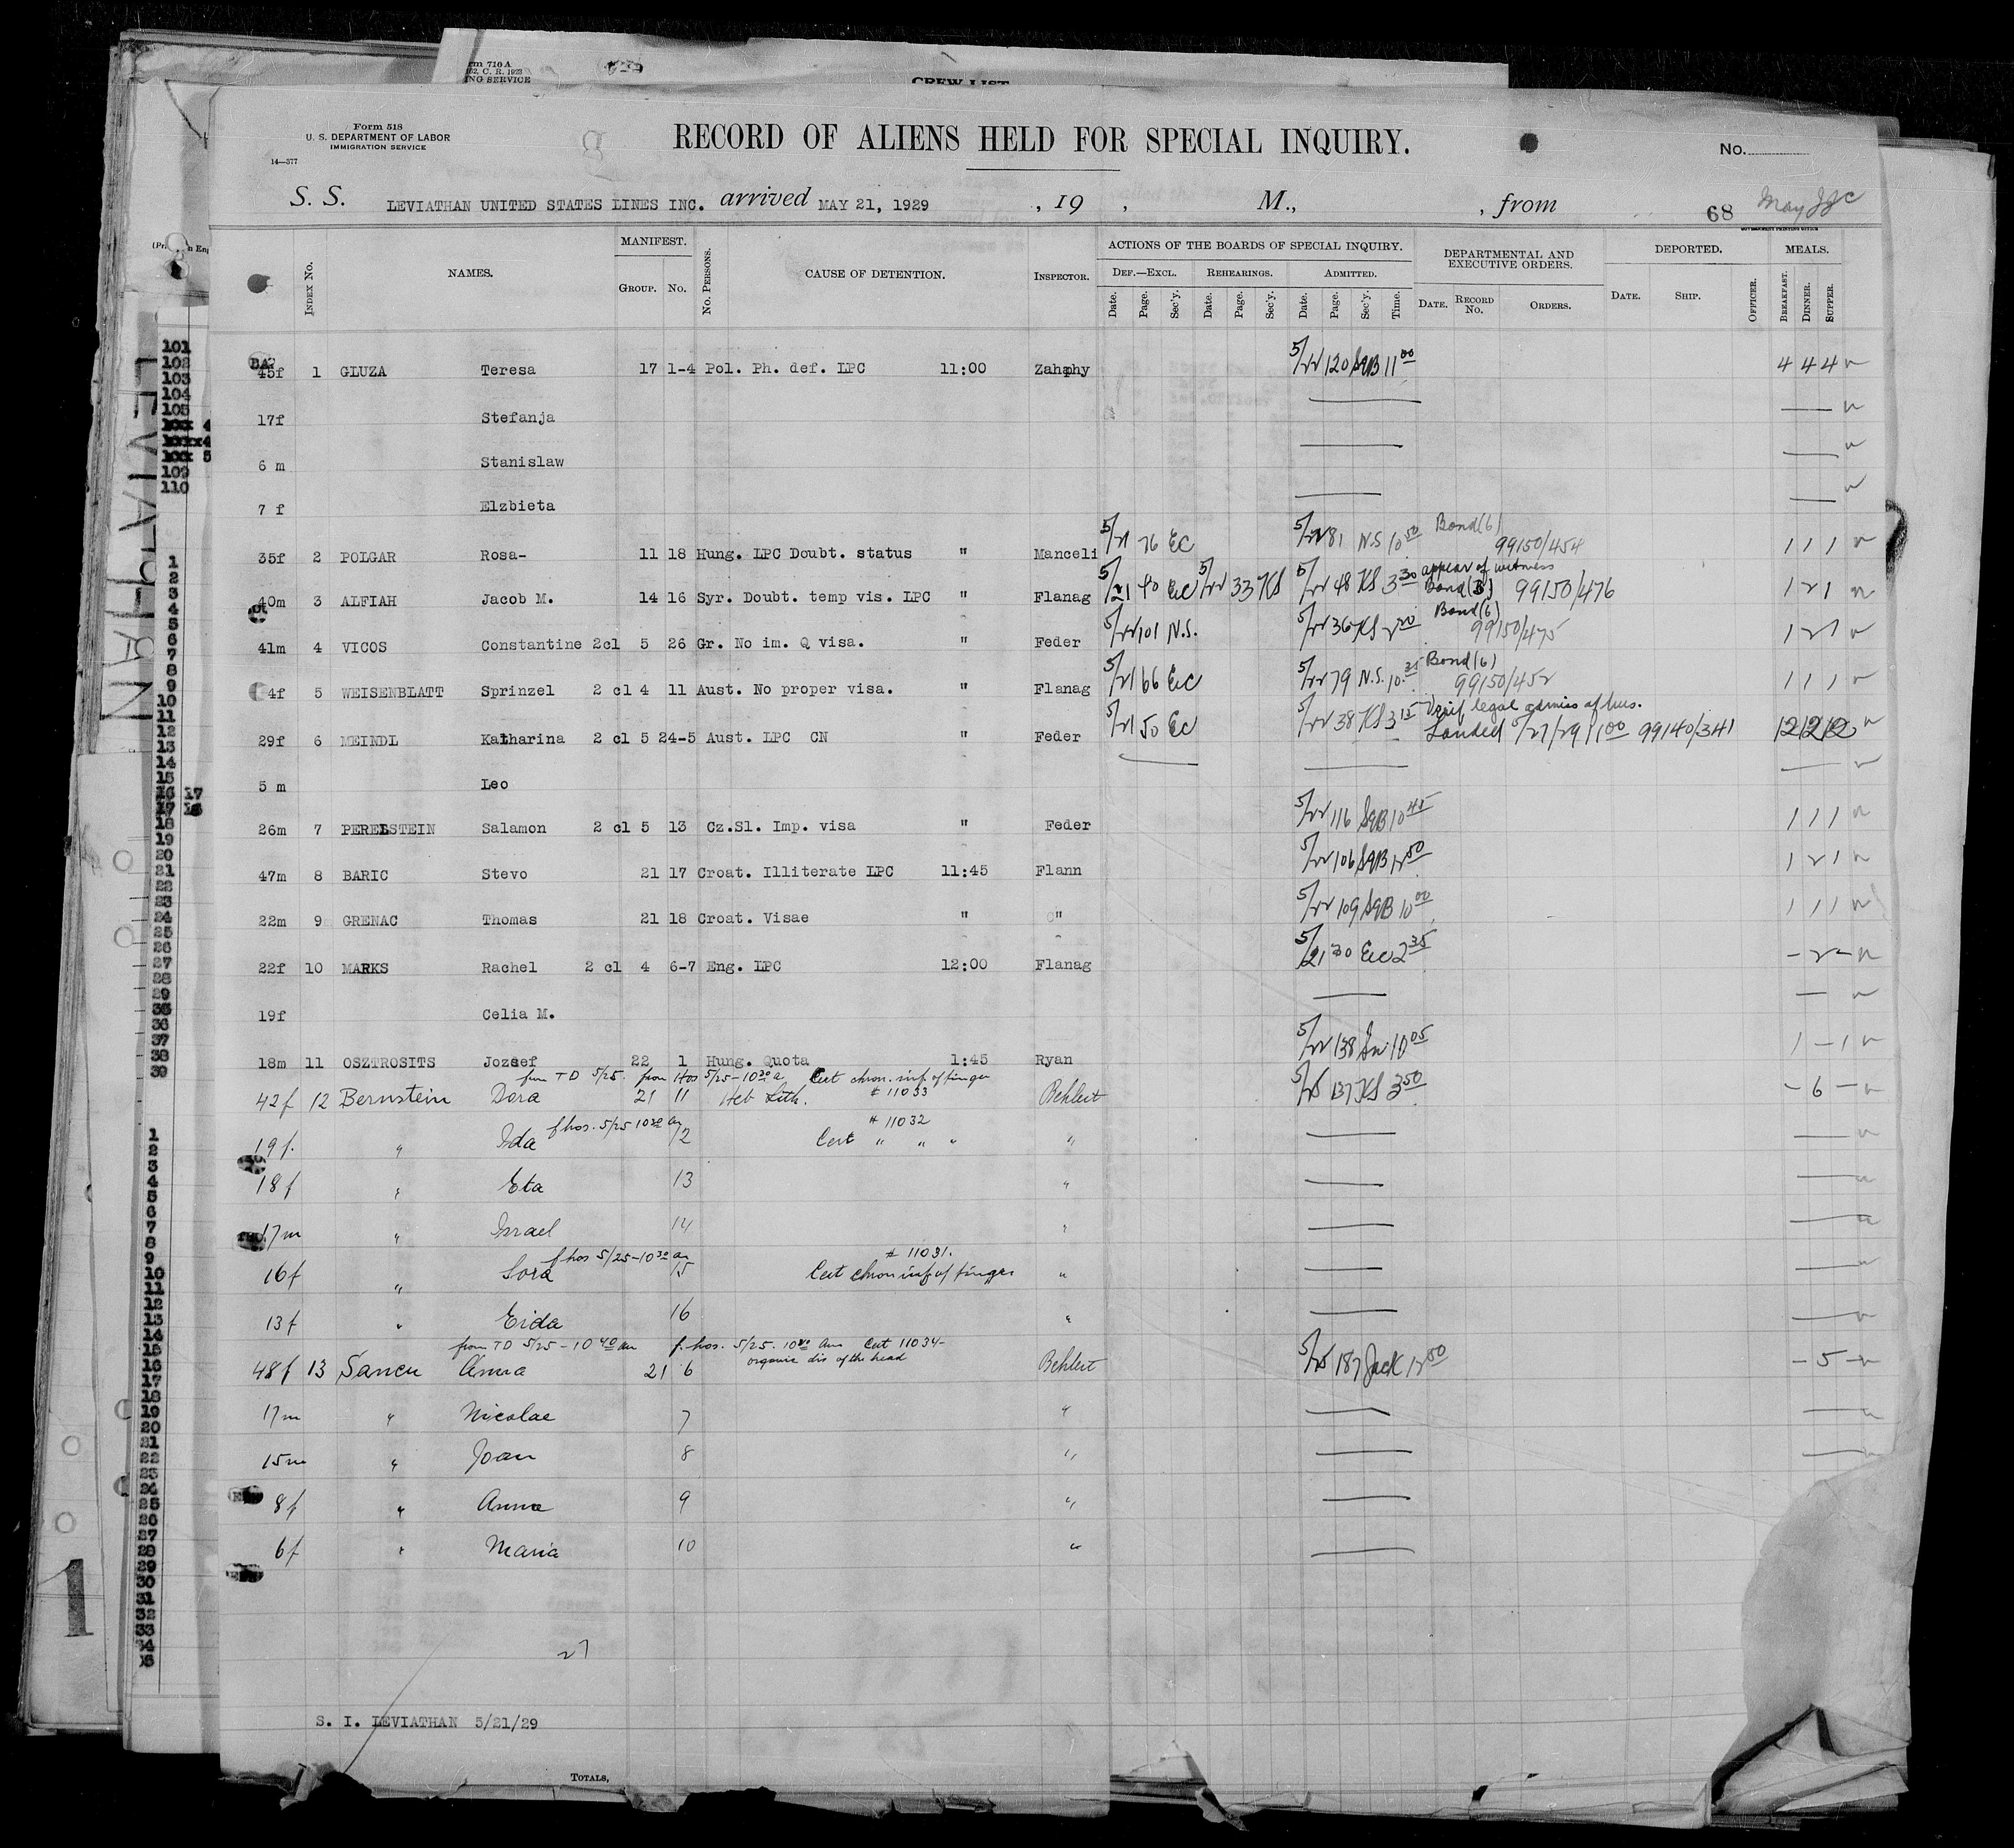 rm 710 A
ING SERVICE
CREW LIST
Form 518
U. S. DEPARTMENT OF LABOR
IMMIGRATION SERVICE
14—377
RECORD OF ALIENS HELD FOR SPECIAL INQUIRY.
No.
S. S. LEVIATHAN UNITED STATES LINES INC. arrived MAY 21, 1929 , 19 , M., , from 68
INDEX NO. NAMES. MANIFEST. GROUP. NO. NO. PERSONS. CAUSE OF DETENTION. INSPECTOR. ACTIONS OF THE BOARDS OF SPECIAL INQUIRY. DEF.—EXCL. REHEARINGS. ADMITTED. DEPARTMENTAL AND EXECUTIVE ORDERS. DEPORTED. MEALS.
Date. Page. Sec'y. Date. Page. Sec'y. Date. Page. Sec'y. Time. DATE. RECORD NO. ORDERS. DATE. SHIP. OFFICER. BREAKFAST. DINNER. SUPPER.
45f 1 GLUZA Teresa 17 1-4 Pol. Ph. def. LPC 11:00 5/22 120 SqB 11 00 4 4 4
17f Stefanja
6 m Stanislaw
7 f Elzbieta
35f 2 POLGAR Rosa- 11 18 Hung. LPC Doubt. status " Manceli 5/21 76 EC 5/22 81 N.S. 10 50 Bond(6) 99150/454 1 1 1
40m 3 ALFIAH Jacob M. 14 16 Syr. Doubt. temp vis. LPC " Flanag 5/21 40 EC 5/22 33 KS 5/22 48 KS 3 30 appear of witness Bond(3) 99150/476 1 2 1
41m 4 VICOS Constantine 2cl 5 26 Gr. No im. Q visa. " Feder 5/22 101 N.S. 5/22 36 KS 2 20 Bond(6) 99150/475 1 2 1
4f 5 WEISENBLATT Sprinzel 2 cl 4 11 Aust. No proper visa. " Flanag 5/21 66 EC 5/22 79 N.S. 10 35 Bond(6) 99150/452 1 1 1
29f 6 MEINDL Katharina 2 cl 5 24-5 Aust. LPC CN " Feder 5/21 50 EC 5/22 38 KS 3 15 Verif legal admiss of hus. Landed 5/27/29 1 00 99140/341 12 12 12
5 m Leo
26m 7 PERELSTEIN Salamon 2 cl 5 13 Cz.Sl. Imp. visa " Feder 5/22 116 SqB 10 45 1 1 1
47m 8 BARIC Stevo 21 17 Croat. Illiterate LPC 11:45 Flann 5/22 106 SqB 12 50 1 2 1
22m 9 GRENAC Thomas 21 18 Croat. Visae " " 5/22 109 SqB 10 00 1 1 1
22f 10 MARKS Rachel 2 cl 4 6-7 Eng. LPC 12:00 Flanag 5/21 30 EC 2 35 – 2 –
19f Celia M.
18m 11 OSZTROSITS Jozsef 22 1 Hung. Quota 1:45 Ryan 5/22 138 10 05 1 – 1
from TD 5/25. from Hos 5/25-10 30 a Cert chron. inf of finger
42f 12 Bernstein Dora 21 11 Heb Lith. # 11033 Behlert 5/25 137 KS 3 50 – 6 –
f hos. 5/25 10 30 am # 11032
19f. " Ida 12 Cert " " " "
18f " Eta 13 "
17m " Israel 14 "
f hos 5/25-10 30 am # 11031.
16f " Sora 15 Cert chron inf of finger "
13f " Eida 16 "
from TD 5/25-10 40 am f. hos. 5/25. 10 40 am Cert 11034-
organic dis of the head
48f 13 Sancu Anna 21 6 Behlert 5/25 187 Jack 12 50 – 5 –
17m " Nicolae 7 "
15m " Joan 8 "
8f " Anna 9 "
6f " Maria 10 "
27
S. I. LEVIATHAN 5/21/29
TOTALS,
LEVIATHAN
1